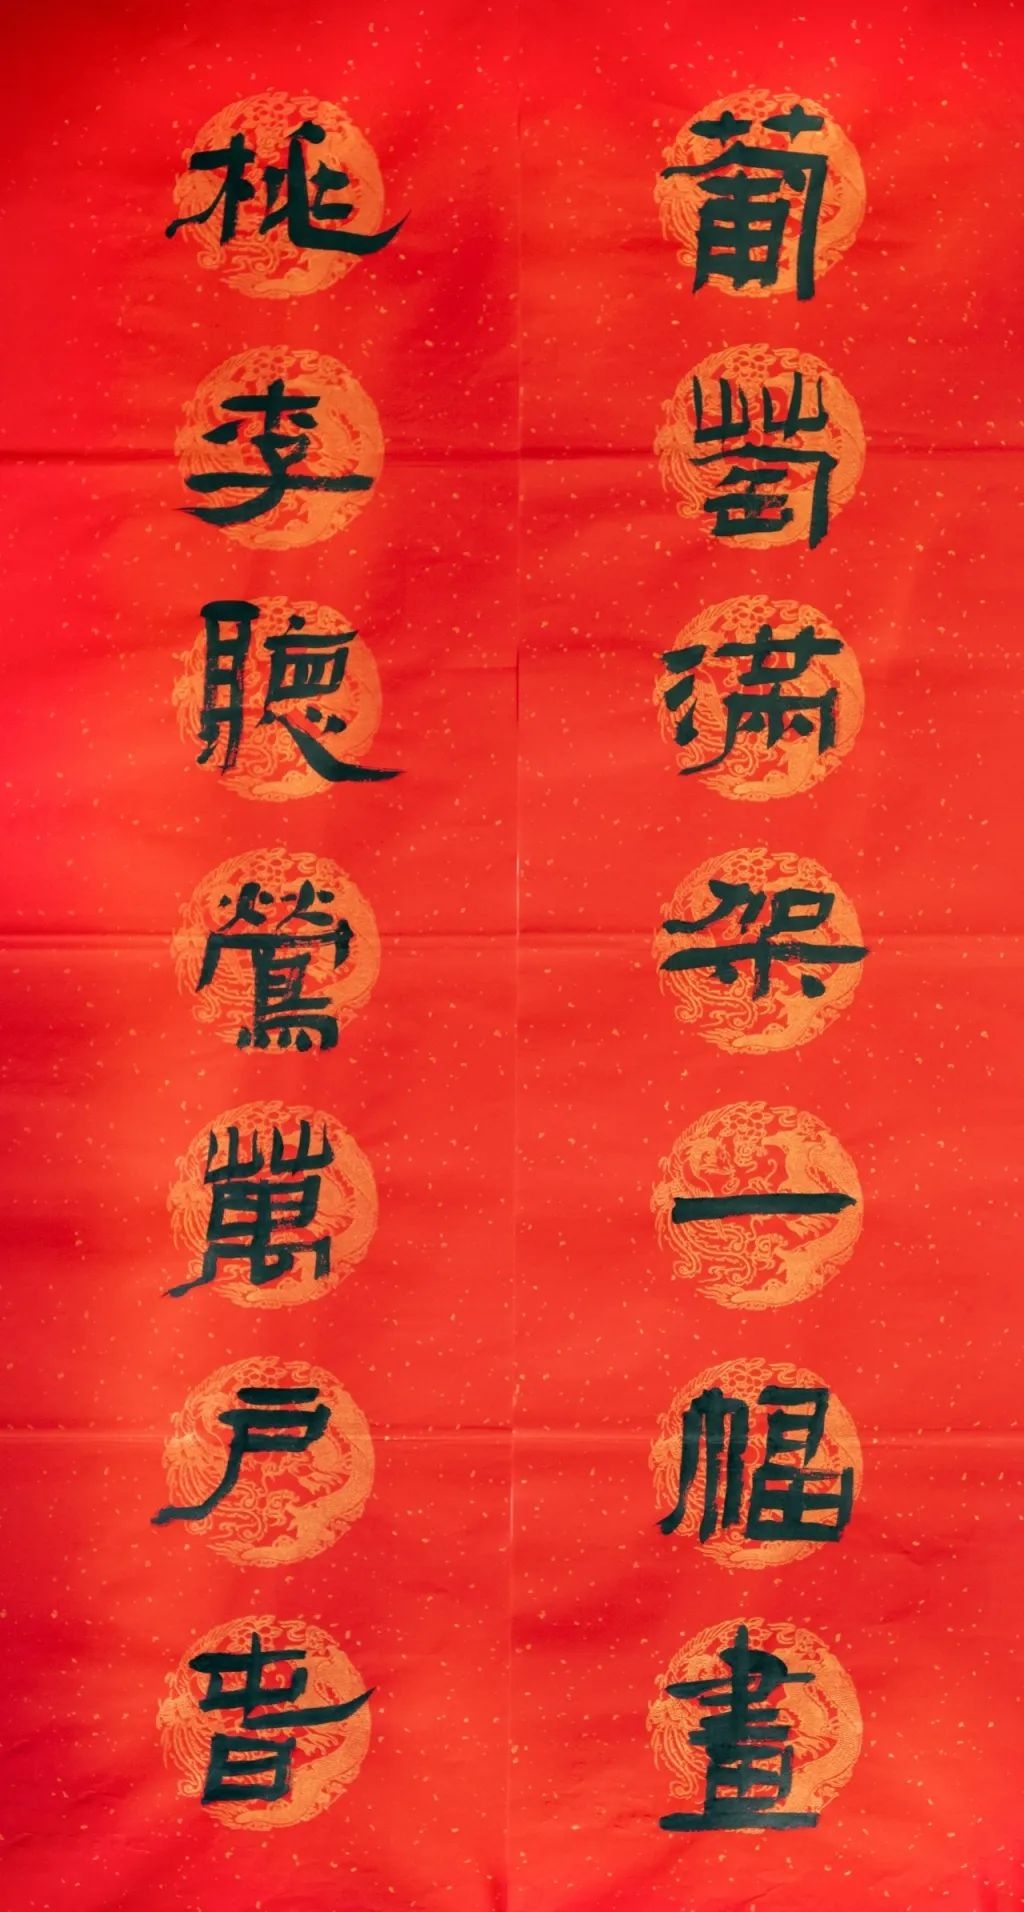 葡萄滿架一幅畫
桃李聽鶯萬戶春